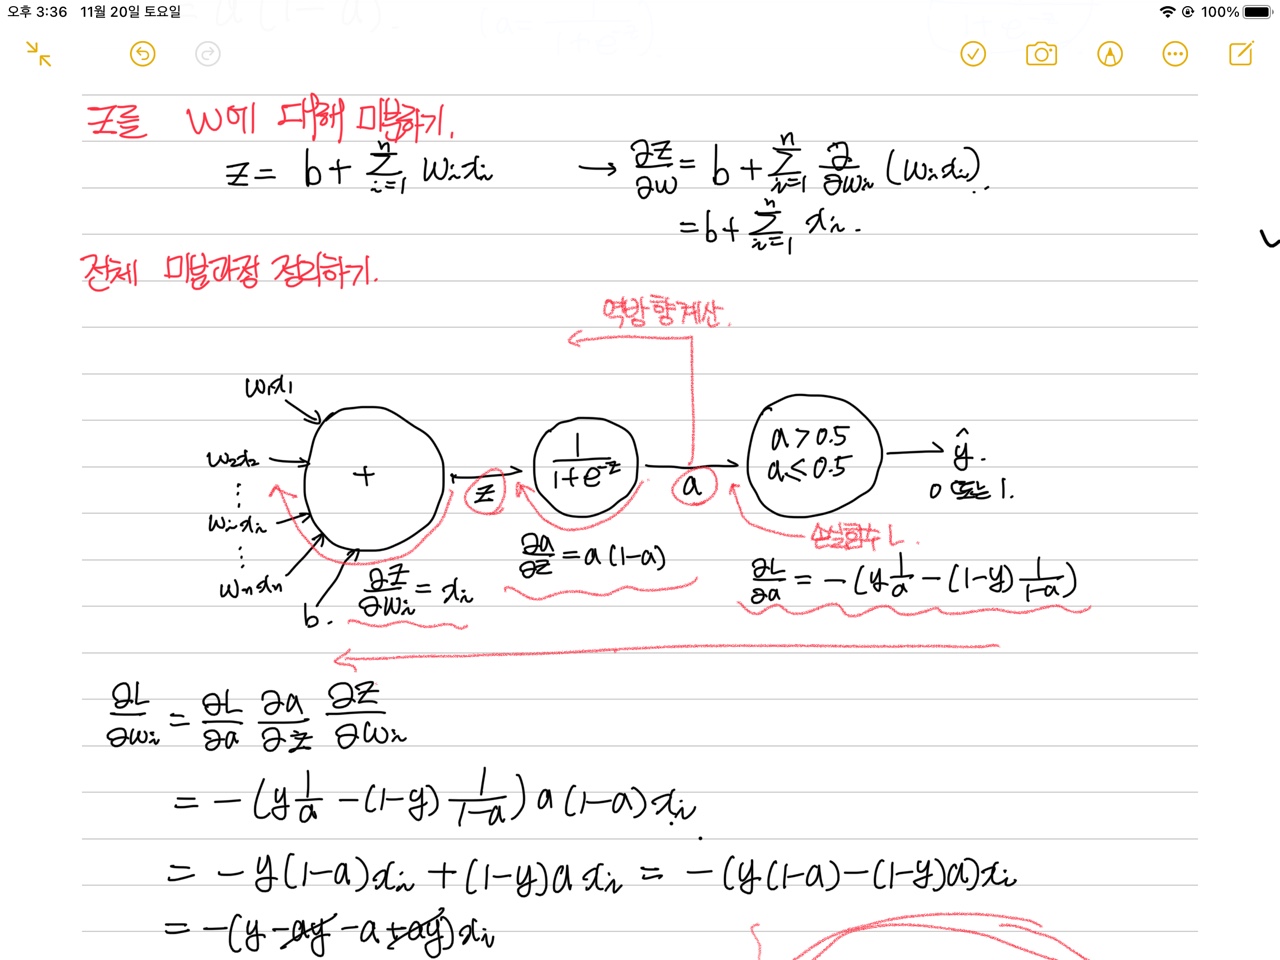 오후 3:36 11월 20일 토요일 100%
z를 w에 대해 미분하기.
z = b + Σ_{i=1}^{n} wᵢxᵢ → ∂z/∂w = b + Σ_{i=1}^{n} ∂/∂wᵢ (wᵢxᵢ).
= b + Σ_{i=1}^{n} xᵢ.
전체 미분과정 정리하기.
역방향계산.
w₁x₁
w₂x₂
⋮
wᵢxᵢ
⋮
wₙxₙ
b.
+
z
1/(1+e^{-z})
a
a > 0.5
a ≤ 0.5
ŷ.
0 또는 1.
손실함수 L.
∂z/∂wᵢ = xᵢ
∂a/∂z = a(1-a)
∂L/∂a = -(y 1/a - (1-y) 1/(1-a))
∂L/∂wᵢ = ∂L/∂a ∂a/∂z ∂z/∂wᵢ
= -(y 1/a - (1-y) 1/(1-a)) a(1-a)xᵢ
= -y(1-a)xᵢ + (1-y)axᵢ = -(y(1-a)-(1-y)a)xᵢ
= -(y-ay-a+ay)xᵢ